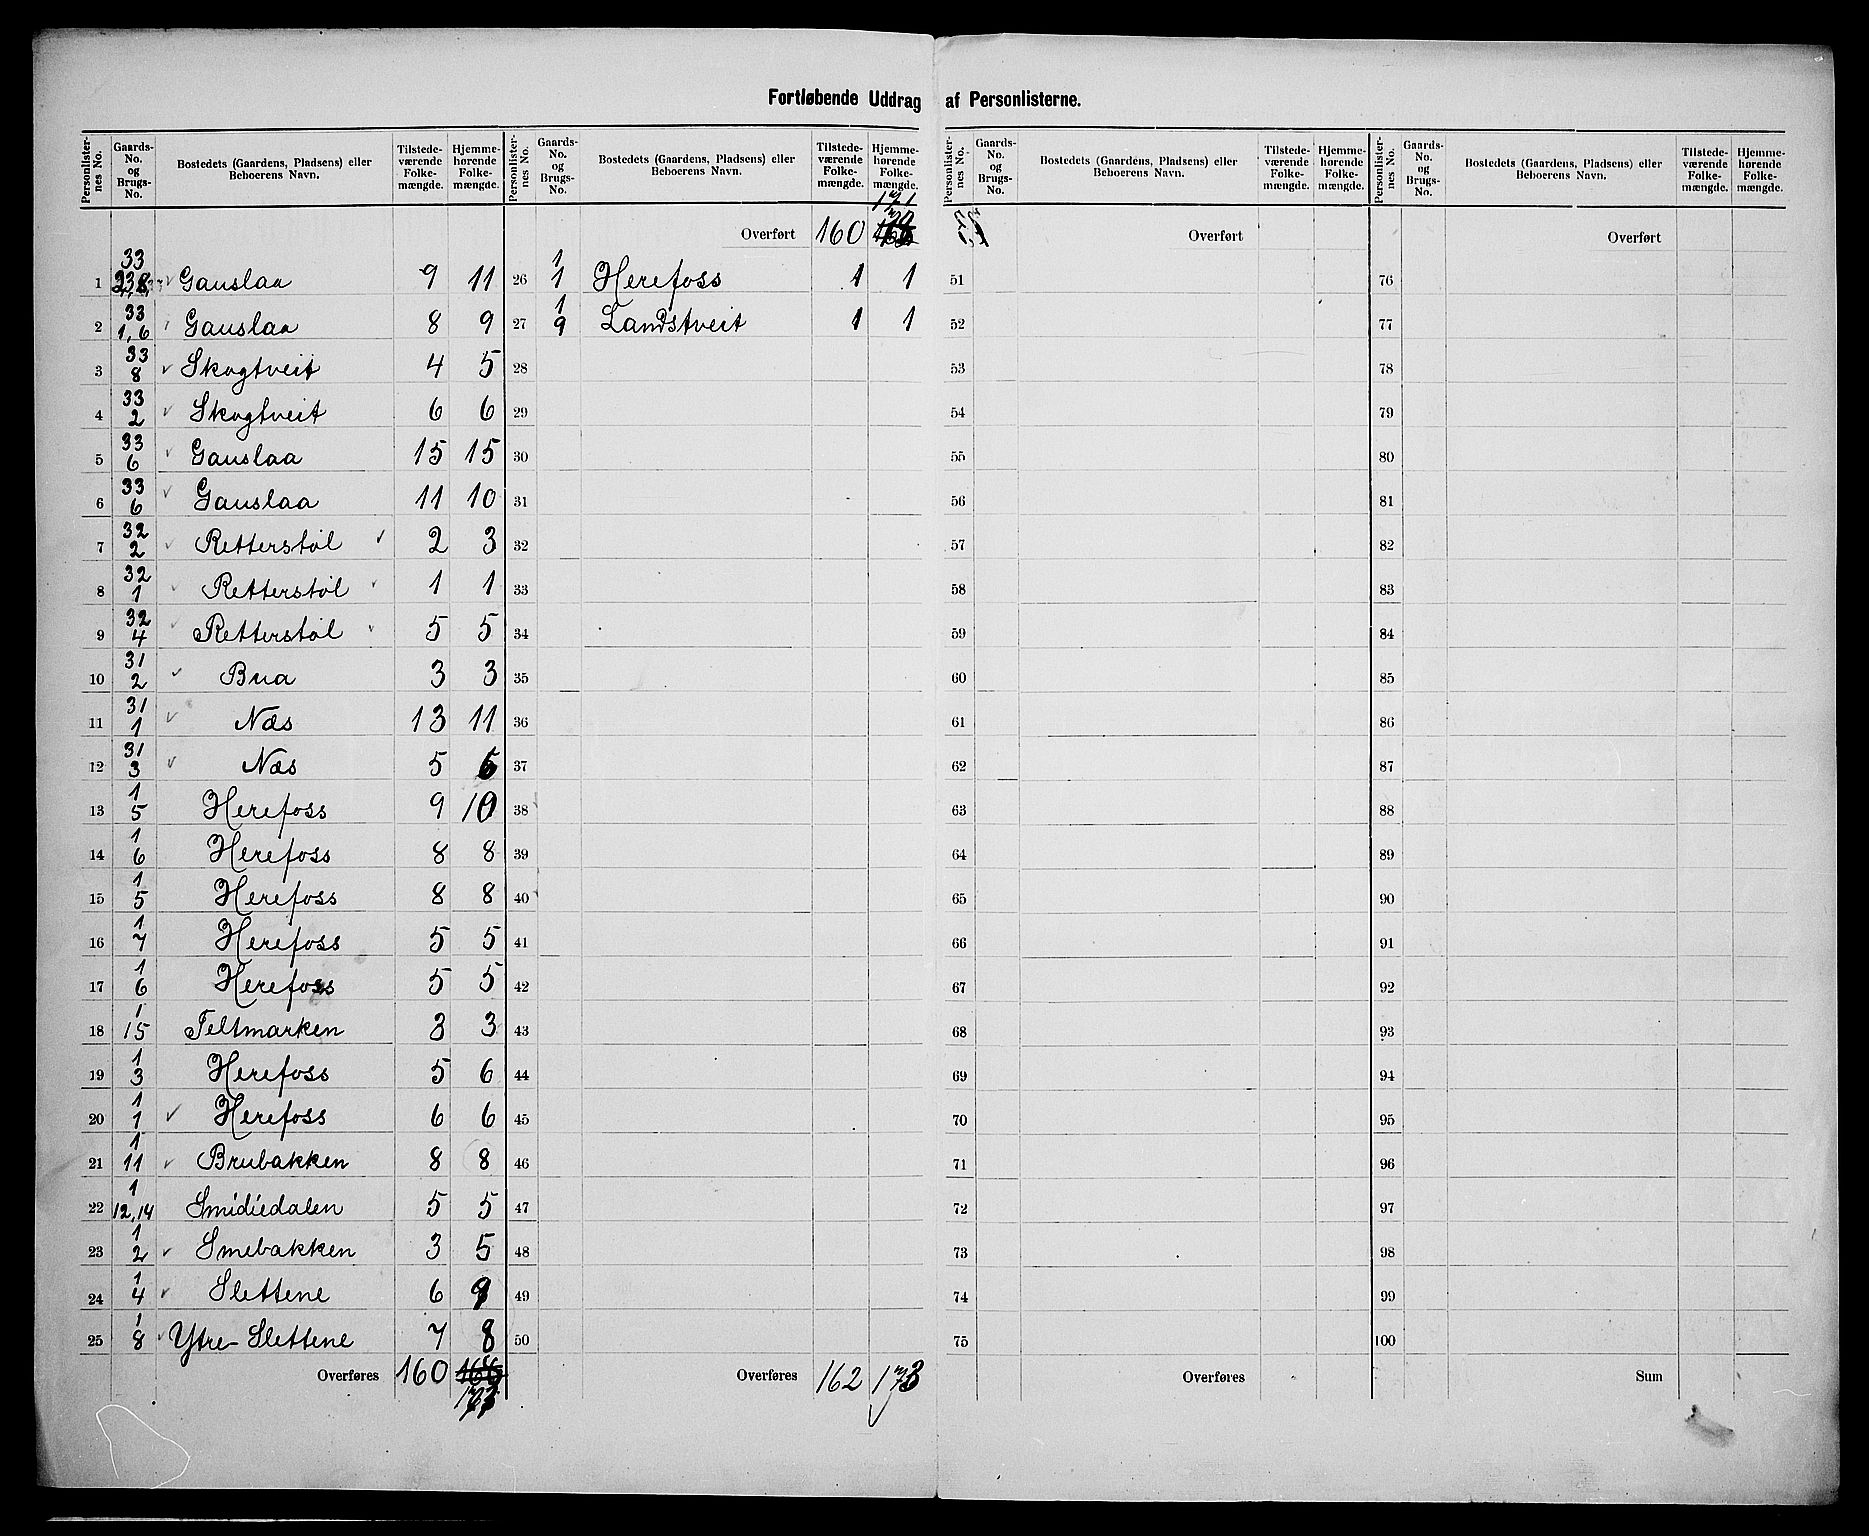 Fortløbende Uddrag af Personlisterne.
Personlister-nes No. | Gaards-No. og Brugs-No. | Bostedets (Gaardens, Pladsens) eller Beboerens Navn. | Tilstede-værende Folke-mængde. | Hjemme-hørende Folke-mængde.
1 | 33 | Gauslaa | 9 | 11
2 | 33 1,6 | Gauslaa | 8 | 9
3 | 33 8 | Skogtveit | 4 | 5
4 | 33 2 | Skogtveit | 6 | 6
5 | 33 6 | Gauslaa | 15 | 15
6 | 33 6 | Gauslaa | 11 | 10
7 | 32 2 | Retterstøl | 2 | 3
8 | 32 1 | Retterstøl | 1 | 1
9 | 32 4 | Retterstøl | 5 | 5
10 | 31 2 | Bua | 3 | 3
11 | 31 1 | Næs | 13 | 11
12 | 31 3 | Næs | 5 | 6
13 | 1 5 | Herefoss | 9 | 10
14 | 1 6 | Herefoss | 8 | 8
15 | 1 5 | Herefoss | 8 | 8
16 | 1 7 | Herefoss | 5 | 5
17 | 1 6 | Herefoss | 5 | 5
18 | 1 15 | Teltmarken | 3 | 3
19 | 1 3 | Herefoss | 5 | 6
20 | 1 1 | Herefoss | 6 | 6
21 | 1 11 | Brubakken | 8 | 8
22 | 1 12,14 | Smidiedalen | 5 | 5
23 | 1 2 | Smebakken | 3 | 5
24 | 1 4 | Slettene | 6
25 | 1 8 | Ytre-Slettene | 7 | 8
Overføres | 160
Personlister-nes No. | Gaards-No. og Brugs-No. | Bostedets (Gaardens, Pladsens) eller Beboerens Navn. | Tilstede-værende Folke-mængde. | Hjemme-hørende Folke-mængde.
Overført | 160 | 171
26 | 1 1 | Herefoss | 1 | 1
27 | 1 9 | Landstveit | 1 | 1
28
29
30
31
32
33
34
35
36
37
38
39
40
41
42
43
44
45
46
47
48
49
50
Overføres | 162 | 173
Personlister-nes No. | Gaards-No. og Brugs-No. | Bostedets (Gaardens, Pladsens) eller Beboerens Navn. | Tilstede-værende Folke-mængde. | Hjemme-hørende Folke-mængde.
Overført
51
52
53
54
55
56
57
58
59
60
61
62
63
64
65
66
67
68
69
70
71
72
73
74
75
Overføres
Personlister-nes No. | Gaards-No. og Brugs-No. | Bostedets (Gaardens, Pladsens) eller Beboerens Navn. | Tilstede-værende Folke-mængde. | Hjemme-hørende Folke-mængde.
Overført
76
77
78
79
80
81
82
83
84
85
86
87
88
89
90
91
92
93
94
95
96
97
98
99
100
Sum